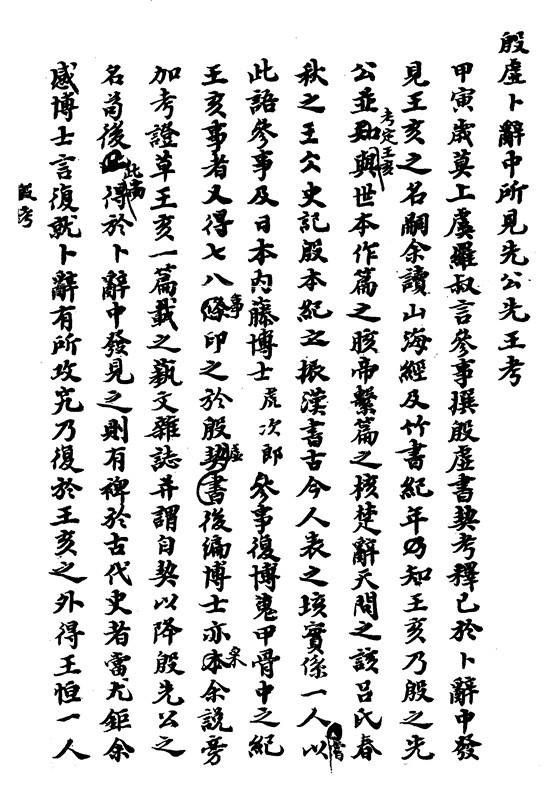 殷虛卜辭中所見先公先王考
甲寅歲莫上虞羅叔言參事撰殷虛書契考釋已於卜辭中發
見王亥之名嗣余讀山海經及竹書紀年乃知王亥乃殷之先
公並與世本作篇之胲帝繫篇之核楚辭天問之該呂氏春
考定王亥
秋之王冰史記殷本紀之振漢書古今人表之垓實係一人以
嘗
此語參事及日本內藤博士虎次郎參事復博蒐甲骨中之紀
王亥事者又得七八條印之於殷契書後編博士亦本余說旁
事
虛
采
加考證草王亥一篇載之藝文雜誌并謂自契以降殷先公之
名苟後此得於卜辭中發見之則有裨於古代史者當尤鉅余
此尚
感博士言復就卜辭有所攻究乃復於王亥之外得王恒一人
殷考